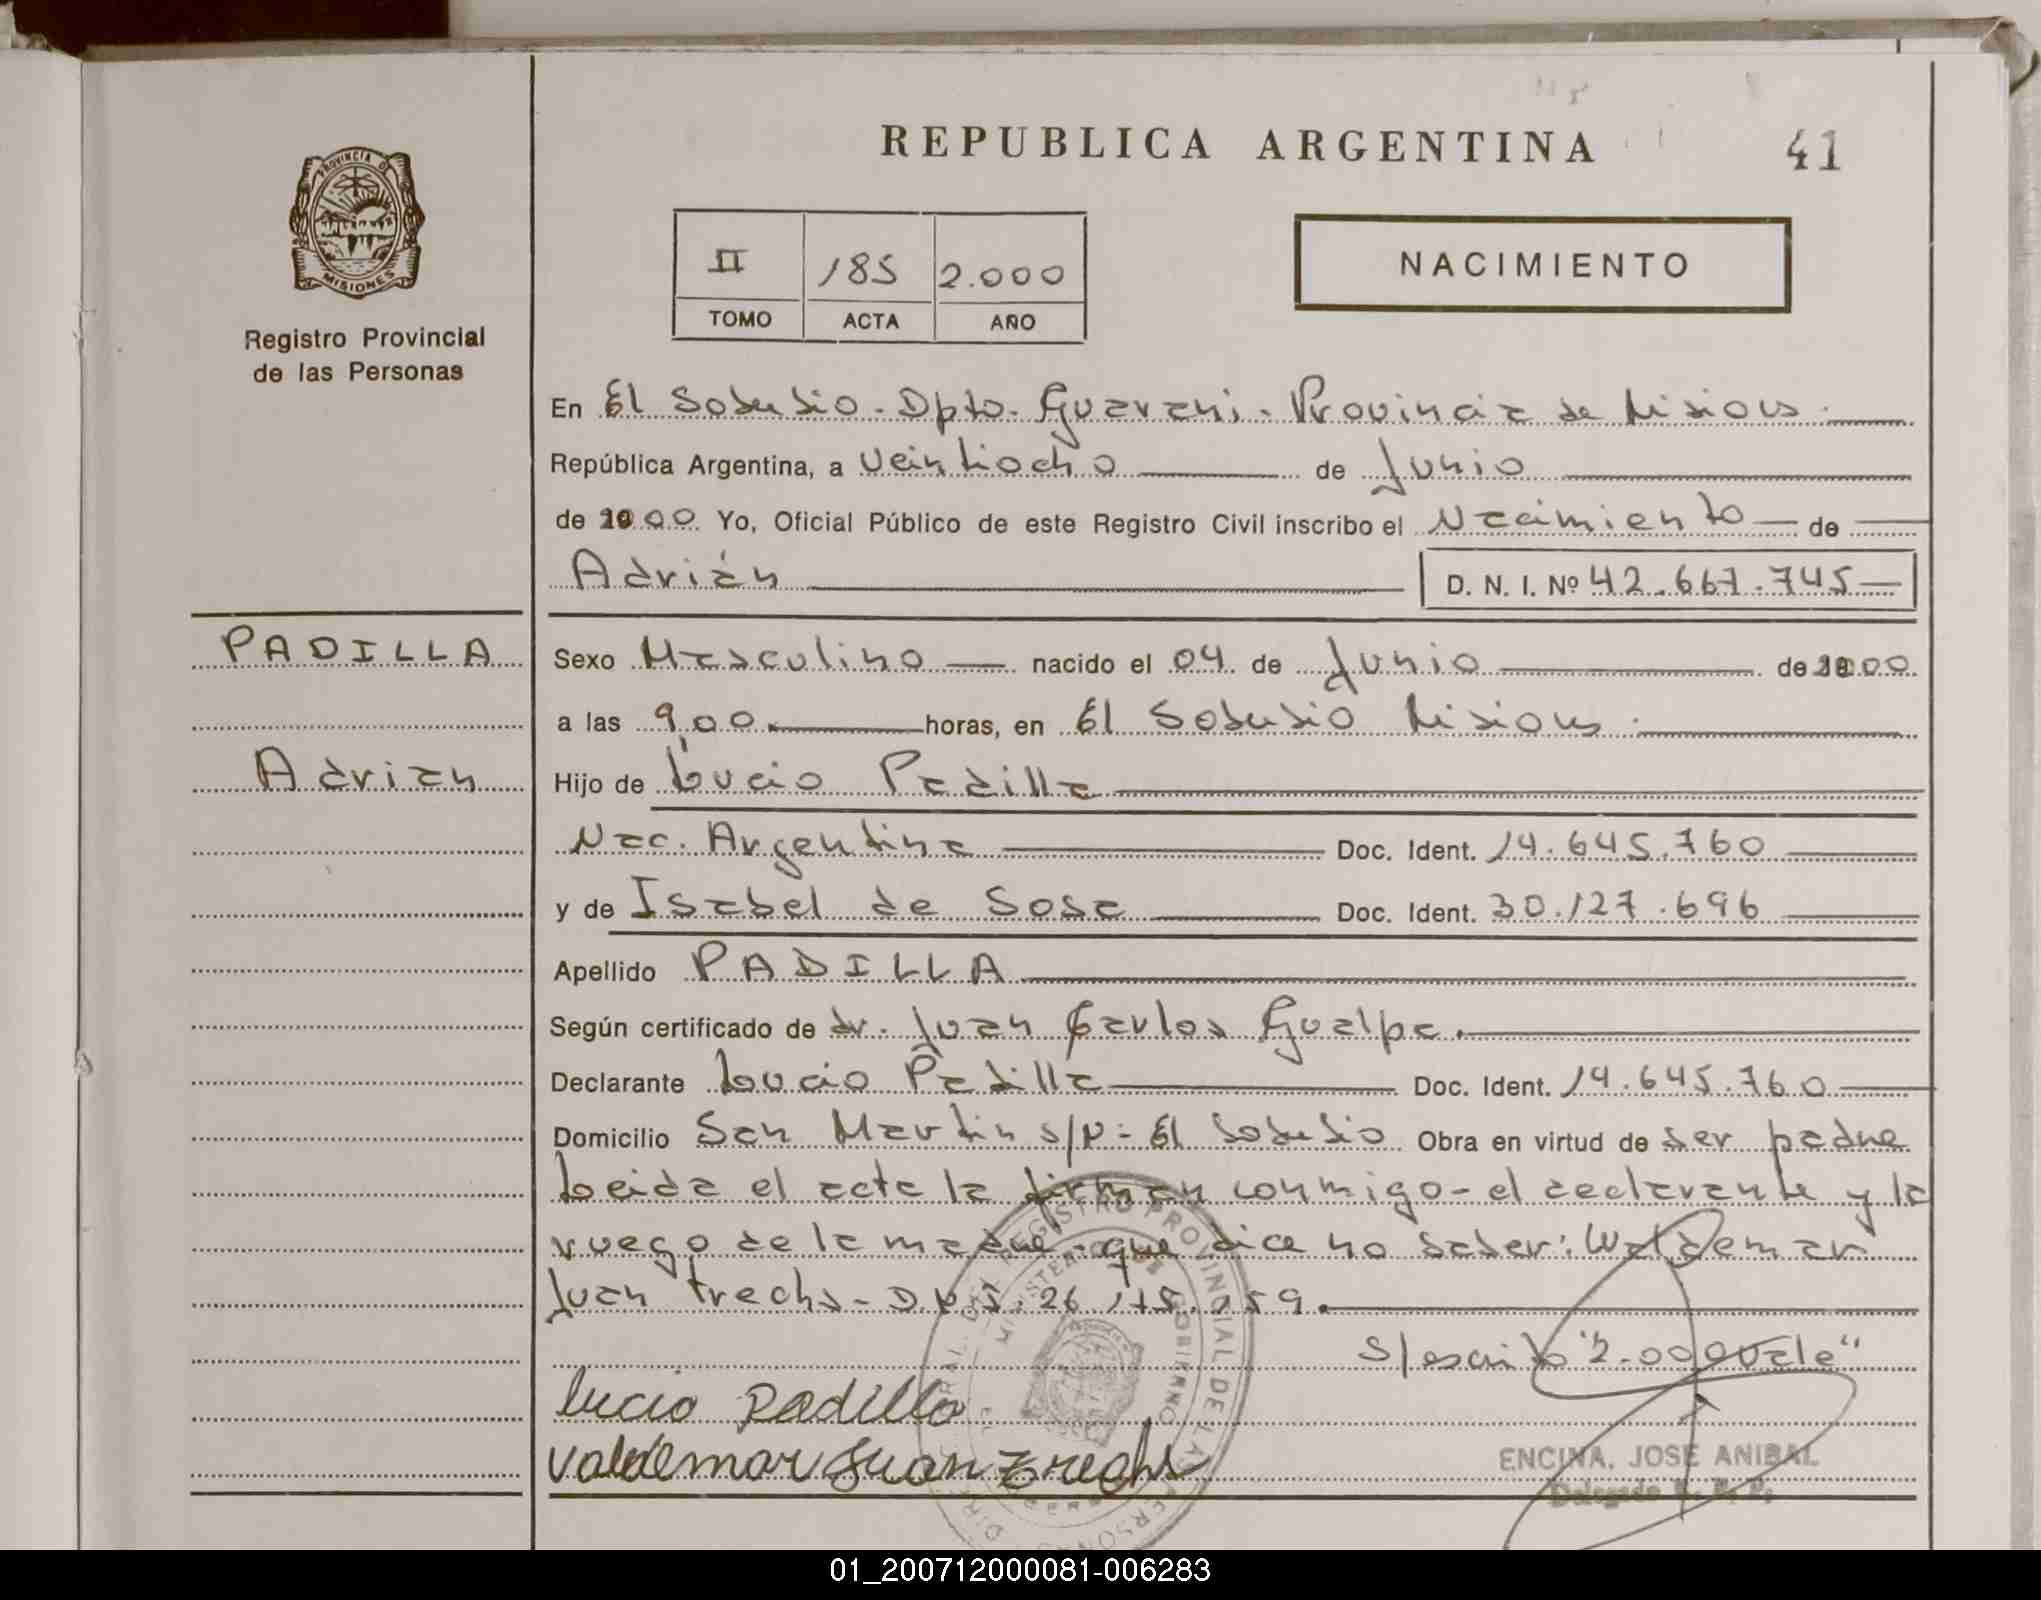 REPUBLICA ARGENTINA
41
PROVINCIA DE MISIONES
Registro Provincial
de las Personas
II 185 2.000
TOMO ACTA AÑO
NACIMIENTO
En El Soberbio - Dpto. Guarani - Provincia de Misiones
República Argentina, a Veintiocho de Junio
de 2000 Yo, Oficial Público de este Registro Civil inscribo el Nacimiento de
Adrián D. N. I. Nº 42.667.745
PADILLA
Adrian
Sexo Masculino nacido el 04 de Junio de 2000
a las 9,00 horas, en El Soberbio Misiones
Hijo de Lucio Padilla
Nac. Argentina Doc. Ident. 14.645.760
y de Isabel de Sosa Doc. Ident. 30.127.696
Apellido PADILLA
Según certificado de dr. Juan Carlos Gualpa.
Declarante Lucio Padilla Doc. Ident. 14.645.760
Domicilio San Martin s/N - El Soberbio Obra en virtud de ser padre
Leida el acta la firman conmigo - el declarante y la
ruego de la madre - que dice no saber: Waldemar
Juan - D.N.I. 26
s/escrito "2.000 vale"
lucio Padilla
Valdemar Juan
ENCINA, JOSE ANIBAL
Delegado R. P. P.
REGISTRO PROVINCIAL DE LAS PERSONAS
01_200712000081-006283